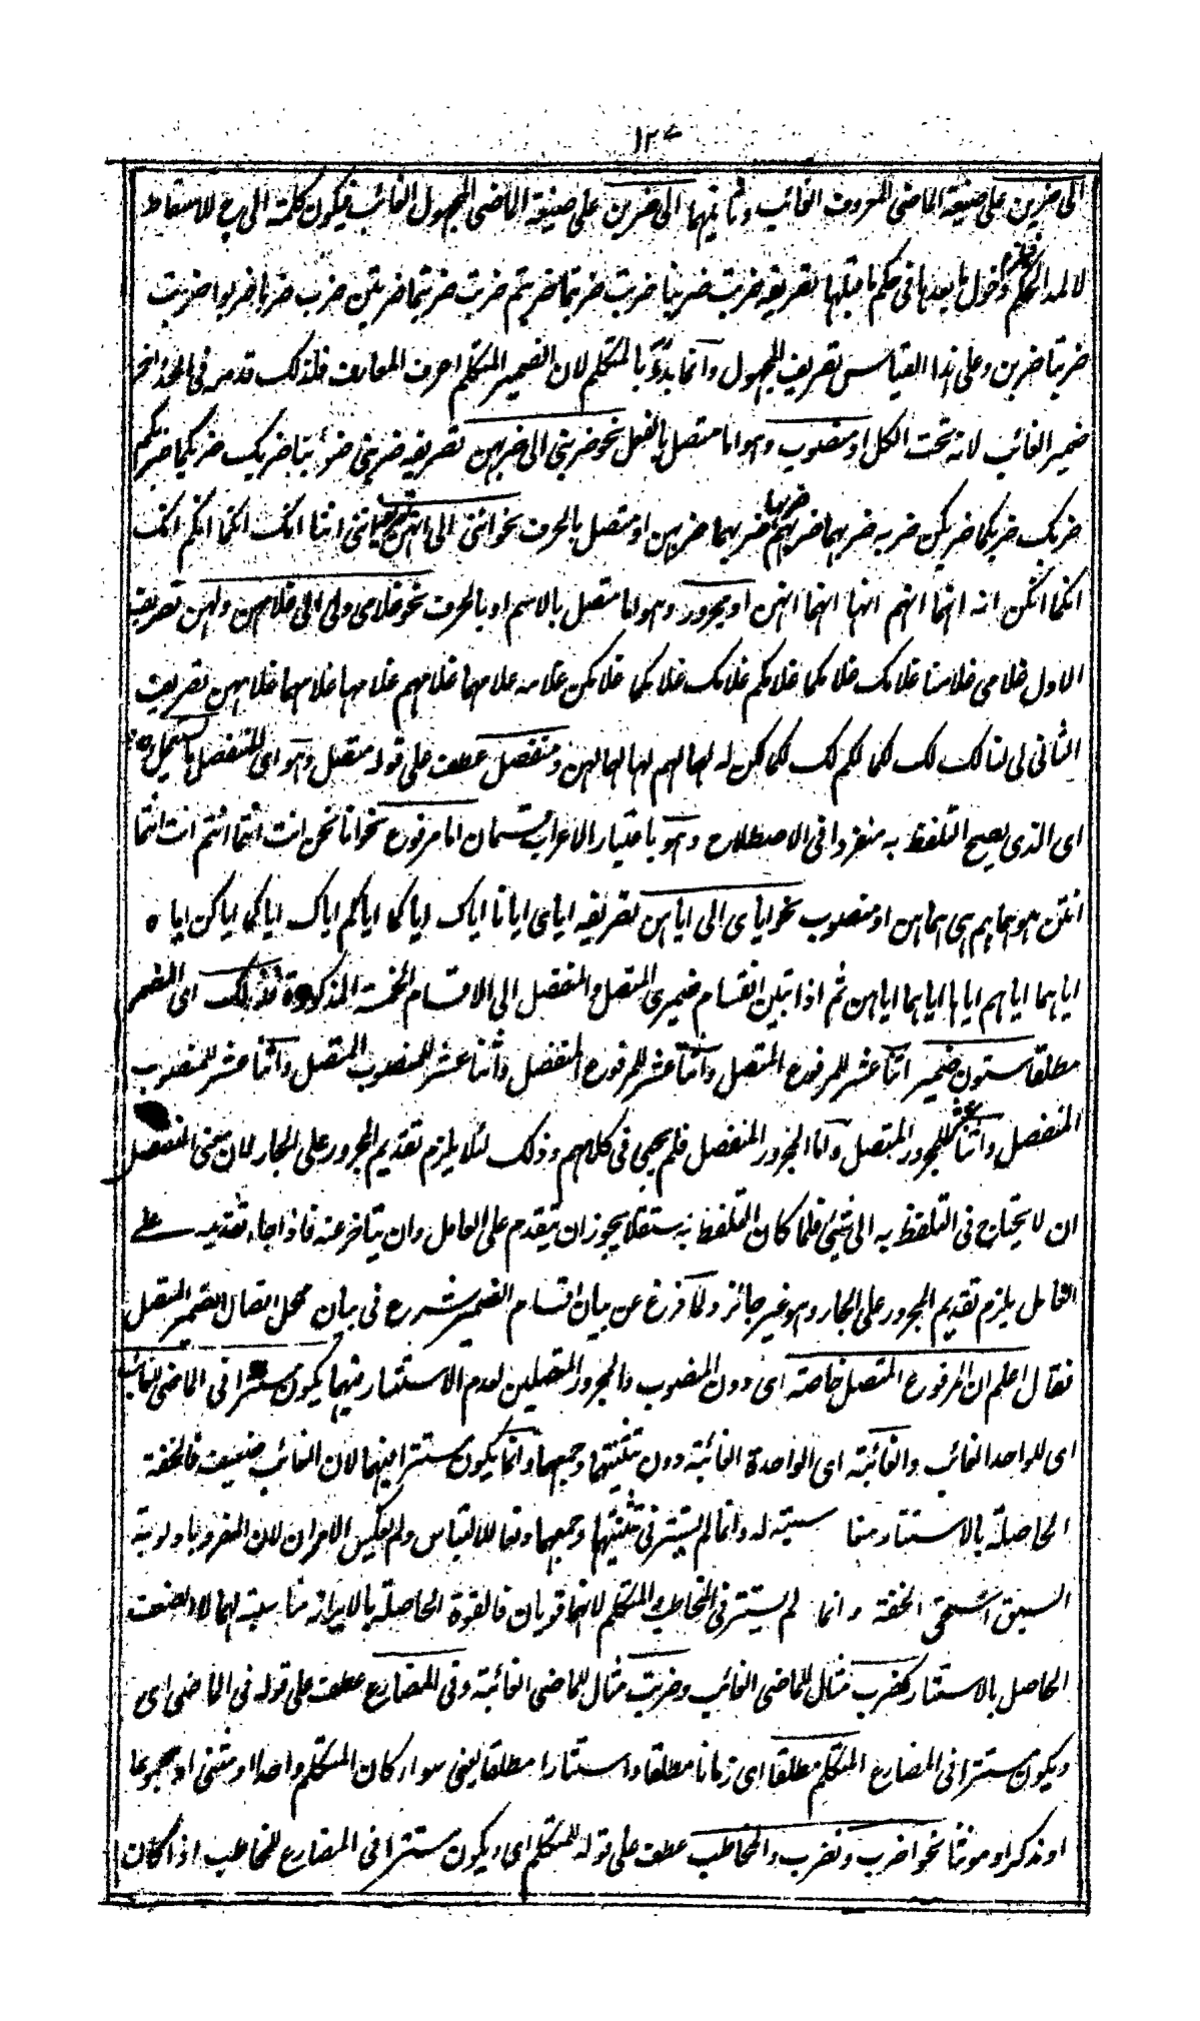 ١٢٧
الى ضربن على صيغة الماضى المعروف الغائب وثانيهما الى ضربن على صيغة الماضى المجهول الغائب فيكون كلمة الى ح للاسقاط
لا لمد الحكم ودخول ما بعدها فى حكم ما قبلها تصريفه ضربت ضربنا ضربت ضربتما ضربتم ضربت ضربتما ضربتن ضرب ضربا ضربوا ضربت
ضربتا ضربن وعلى هذا القياس تصريف المجهول وانما بدئ بالمتكلم لان الضمير المتكلم اعرف المعارف فلذلك قدمه فى الاخذ اخر
ضمير الغائب لانه تحت الكل او منصوب وهو اما متصل بالفعل نحو ضربنى الى ضربهن تصريفه ضربنى ضربنا ضربك ضربكما ضربكم
ضربك ضربكما ضربكن ضربه ضربهما ضربهم ضربها ضربهما ضربهن او متصل بالحرف نحو اننى الى انهن اننى اننا انك انكما انكم انك
انكما انكن انه انهما انهم انها انهما انهن او مجرور وهو اما متصل بالاسم او بالحرف نحو غلامى ولى الى غلامهن ولهن تصريف
الاول غلامى غلامنا غلامك غلامكما غلامكم غلامك غلامكما غلامكن غلامه غلامهما غلامهم غلامها غلامهما غلامهن تصريف
الثانى لى لنا لك لكما لكم لك لكما لكن له لهما لهم لها لهما لهن ومنفصل عطف على قوله متصل وهو اى المنفصل ما يستعمل وحده
اى الذى يصح التلفظ به منفردا فى الاصطلاح وهو باعتبار الاعراب قسمان اما مرفوع نحو انا نحن انت انتما انتم انت انتما
انتن هو هما هم هى هما هن او منصوب نحو اياى الى اياهن تصريفه اياى ايانا اياك اياكما اياكم اياك اياكما اياكن اياه
اياهما اياهم اياها اياهما اياهن ثم اذا تبين انقسام ضميرى المتصل والمنفصل الى الاقسام الخمسة المذكورة فذلك اى المضمر
مطلقا ستون ضمير اثنا عشر للمرفوع المتصل واثنا عشر للمرفوع المنفصل واثنا عشر للمنصوب المتصل واثنا عشر للمنصوب
المنفصل واثنا عشر للمجرور المتصل واما المجرور المنفصل فلم يجئ فى كلامهم وذلك لئلا يلزم تقديم المجرور على الجار لان معنى المنفصل
ان لا يحتاج فى التلفظ به الى شئ فلما كان التلفظ به مستقلا يجوز ان يتقدم على العامل وان يتاخر عنه فاذا جاء تقديمه على
العامل يلزم تقديم المجرور على الجار وهو غير جائز ولما فرغ عن بيان اقسام الضمير شرع فى بيان محل اتصال الضمير المتصل
فقال اعلم ان المرفوع المتصل خاصة اى دون المنصوب والمجرور المتصلين لعدم الاستتار فيهما يكون مستترا فى الماضى للغائب
اى للواحد الغائب والغائبة اى الواحدة الغائبة دون تثنيتهما وجمعهما وانما يكون مستترا فيهما لان الغائب ضعيف فالخفة
الحاصلة بالاستتار مناسبته له وانما لم يستتر فى تثنيتهما وجمعهما دفعا للالتباس ولم يعكس الامر لان المفرد باولوية
السبق استحق الخفة وانما لم يستتر فى المخاطب والمتكلم لانهما قويان فالقوة الحاصلة بالابراز مناسبة لهما لا الضعف
الحاصل بالاستتار كضرب مثال للماضى الغائب وضربت مثال للماضى الغائبة وفى المضارع عطف على قوله فى الماضى اى
ويكون مستترا فى المضارع المتكلم مطلقا اى زمانا مطلقا واستتارا مطلقا يعنى سواء كان المتكلم واحدا او مثنى او مجموعا
او مذكرا او مونثا نحو اضرب ونضرب والمخاطب عطف على قوله للمتكلم اى ويكون مستترا فى المضارع للمخاطب اذا كان